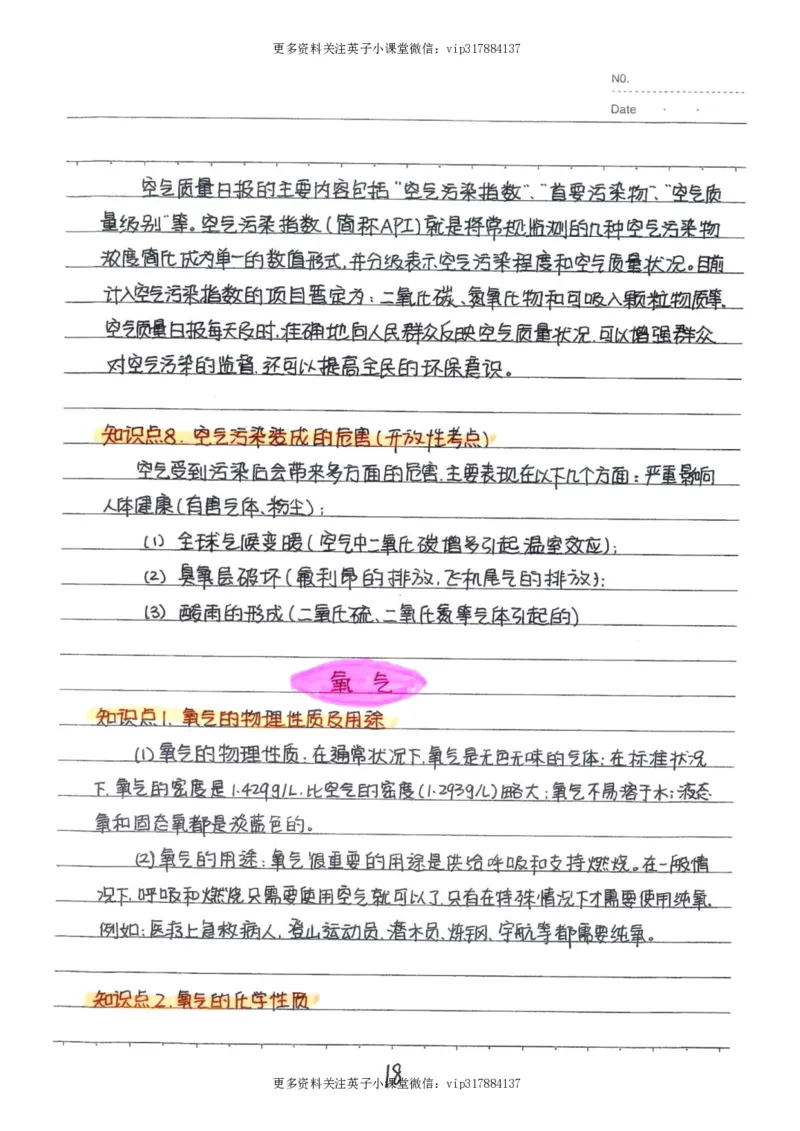 更多资料关注英子小课堂微信：vip317884137
NO.
Date · ·
空气质量日报的主要内容包括"空气污染指数"、"首要污染物"、"空气质
量级别"等。空气污染指数(简称API)就是将常规监测的几种空气污染物
浓度简化成为单一的数值形式,并分级表示空气污染程度和空气质量状况。目前
计入空气污染指数的项目暂定为：二氧化碳、氮氧化物和可吸入颗粒物质等,
空气质量日报每天及时,准确地向人民群众反映空气质量状况,可以增强群众
对空气污染的监督,还可以提高全民的环保意识。
知识点8. 空气污染造成的危害(开放性考点)
空气受到污染后会带来多方面的危害,主要表现在以下几个方面：严重影响
人体健康(有害气体、粉尘)；
(1) 全球气候变暖(空气中二氧化碳增多引起温室效应)；
(2) 臭氧层破坏(氟利昂的排放,飞机尾气的排放)；
(3) 酸雨的形成(二氧化硫、二氧化氮等气体引起的)
氧 气
知识点1. 氧气的物理性质及用途
(1)氧气的物理性质：在通常状况下,氧气是无色无味的气体；在标准状况
下,氧气的密度是1.429g/L.比空气的密度(1.293g/L)略大；氧气不易溶于水；液态
氧和固态氧都是淡蓝色的。
(2)氧气的用途：氧气很重要的用途是供给呼吸和支持燃烧。在一般情
况下,呼吸和燃烧只需要使用空气就可以了,只有在特殊情况下才需要使用纯氧,
例如：医疗上急救病人,登山运动员、潜水员、炼钢、宇航等都需要纯氧。
知识点2.氧气的化学性质
18
更多资料关注英子小课堂微信：vip317884137